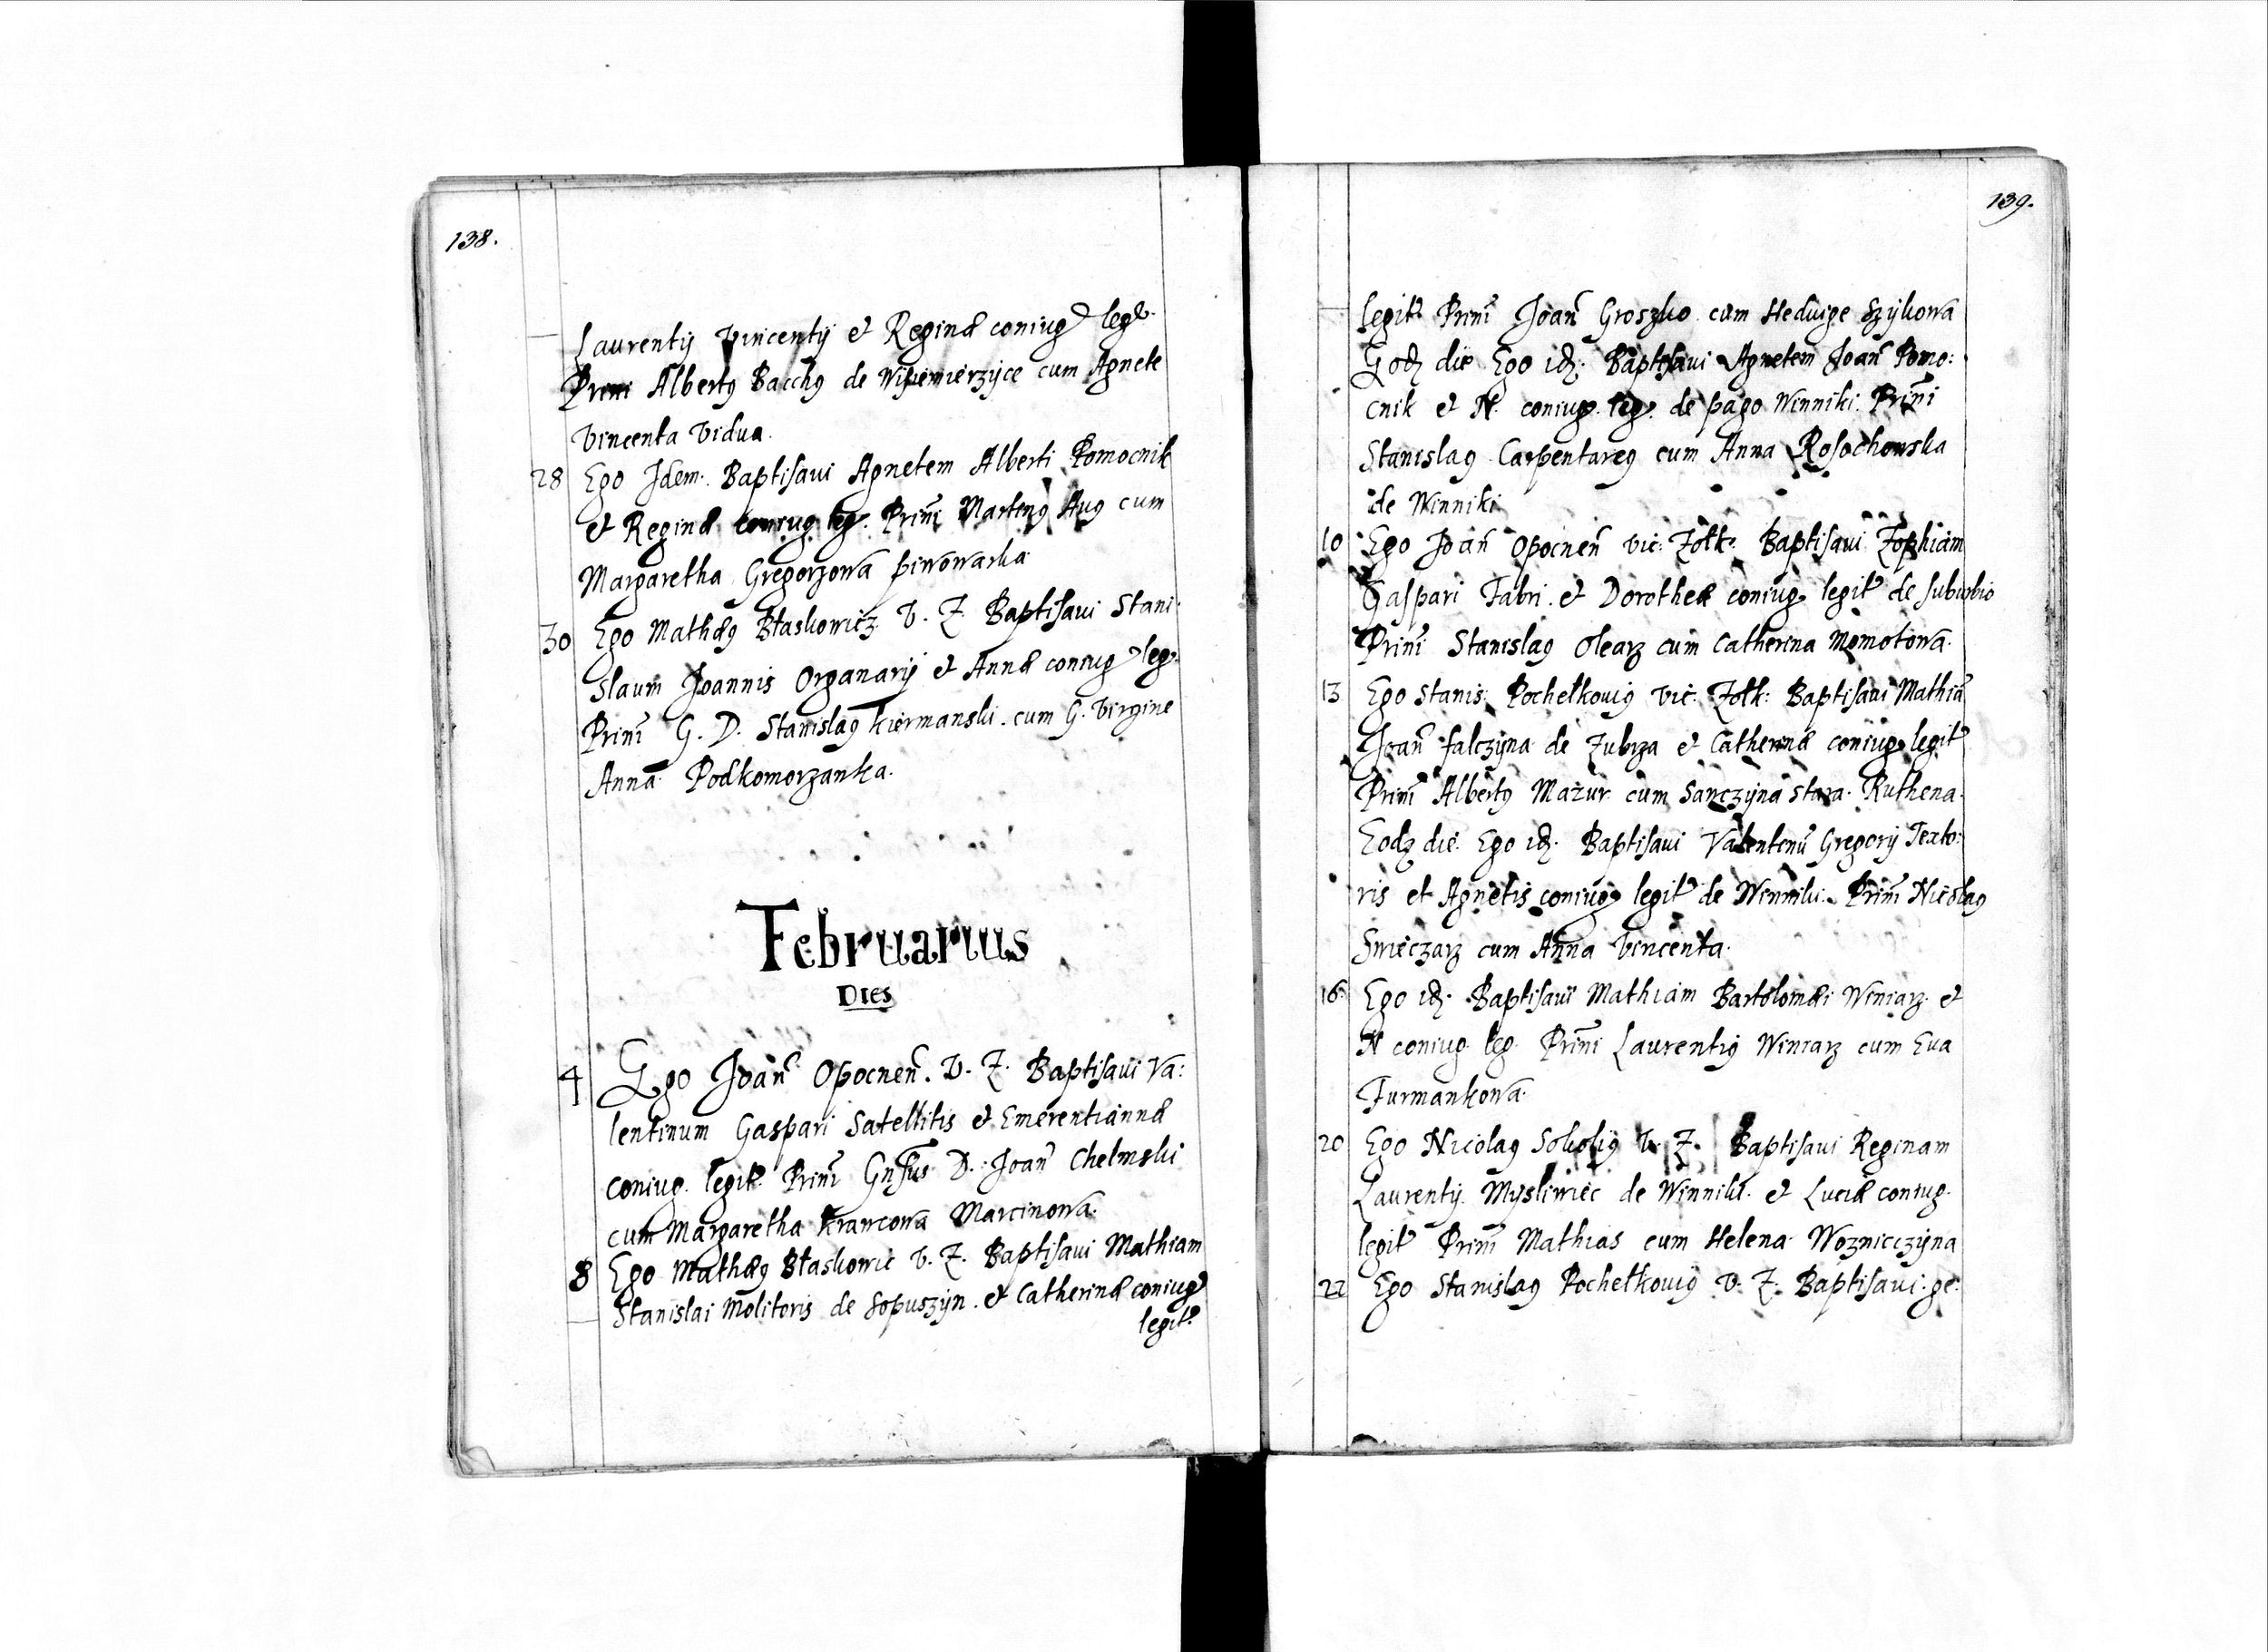 138.
Laurentij Vincentij et Reginæ coniug leg.
Prini Albertꝰ Bacchꝰ de Wisiemierzyce cum Agnete
Vincenta Vidua.
28 Ego Idem. Baptisaui Agnetem Alberti Pomocnik
et Reginæ coniug leg. Prini Martenꝰ Augꝰ cum
Margaretha Gregorzowa piwowarka
30 Ego Mathæꝰ Błaskowicz V. Z. Baptisaui Stani:
slaum Joannis Organarij et Annæ coniug leg.
Prini G. D. Stanislaꝰ Kiermanski. cum G. Virgine
Anna Podkomorzanka.
Februarius
Dies
4 Ego Joan Opocnen. V. Z. Baptisaui Va:
lentinum Gaspari Satellitis et Emerentiannæ
coniug. legit. Prini Gnsus D. Joan Chelmski
cum Margaretha Krawcowa Marcinowa.
8 Ego Mathæꝰ Błaskowic V. Z. Baptisaui Mathiam
Stanislai Molitoris de Sopuszyn. et Catherinæ coniug
legit.
139.
legit. Prini Joan Groszko cum Heduige Szykowa
Eodz die Ego idz. Baptisaui Agnetem Joan Pomo:
cnik et N. coniug. leg. de pago Winniki. Prini
Stanislaꝰ Carpentareꝰ cum Anna Rosochowska
de Winniki.
10 Ego Joan Opocnen vic: Zołk: Baptisaui Zophiam
Gaspari Fabri. et Dorotheæ coniug legit de suburbio
Prini Stanislaꝰ Olearz cum Catherina Momotowa.
13 Ego Stanis: Pochełkouiꝰ vic: Zołk: Baptisaui Mathia
Joan falczyna de Zubrza et Catherinæ coniug legit
Prini Albertꝰ Mazur cum Sanczyna stara. Ruthena.
Eodz die. Ego idz. Baptisaui Valentenu Gregorij Texto:
ris et Agnetis coniug legit de Winniki. Prini Nicolaꝰ
Swieczarz cum Anna Vincenta.
16. Ego idz. Baptisaui Mathiam Bartolomæi Winiarz. et
N coniug. leg. Prini Laurentiꝰ Winiarz cum Eua
Furmankowa.
20 Ego Nicolaꝰ Sokoliꝰ V. Z. Baptisaui Reginam
Laurentij. Mysliwiec de Winniki. et Luciæ coniug.
legit Prini Mathias cum Helena Wozniczyna
22 Ego Stanislaꝰ Pochełkouiꝰ V. Z. Baptisaui. ge: